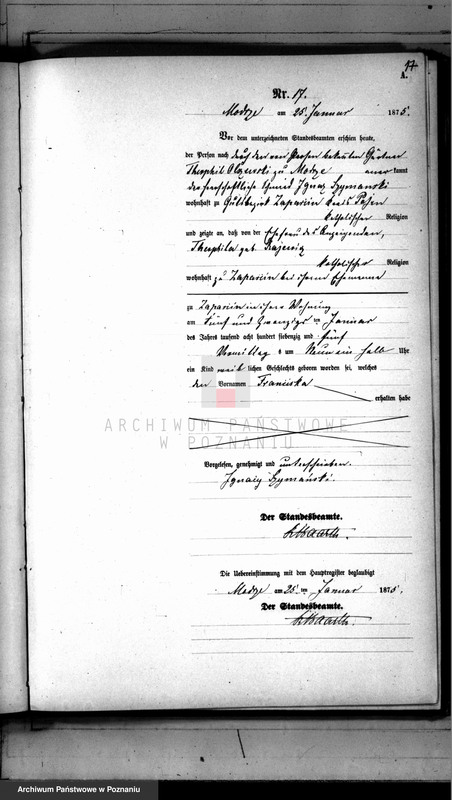 17
A.
Nr. 17.
Modrze am 25. Januar 1875.
Vor dem unterzeichneten Standesbeamten erschien heute,
der Person nach durch den von Person bekannten Gärtner
Theophil zu Modrze anerkannt
der herrschaftliche Ignaz Szymanski
wohnhaft zu Gutsbezirk Zaparcin Kreis Posen
katholischer Religion
und zeigte an, daß von der Ehefrau des Anzeigenden,
Theophila geb.
katholischer Religion
wohnhaft zu Zaparcin bei ihrem Ehemanne
zu Zaparcin in ihrer Wohnung
am Fünf und Zwanzigsten Januar
des Jahrs tausend acht hundert siebenzig und fünf
Vormittag s um Neun ein halb Uhr
ein Kind weib lichen Geschlechts geboren worden sei, welches
den Vornamen Franciska
erhalten habe
ARCHIWUM PAŃSTWOWE
W POZNANIU
Vorgelesen, genehmigt und unterschrieben.
Ignacy Szymański.
Der Standesbeamte.
Die Uebereinstimmung mit dem Hauptregister beglaubigt
Modrze am 25 ten Januar 1875.
Der Standesbeamte.
Archiwum Państwowe w Poznaniu